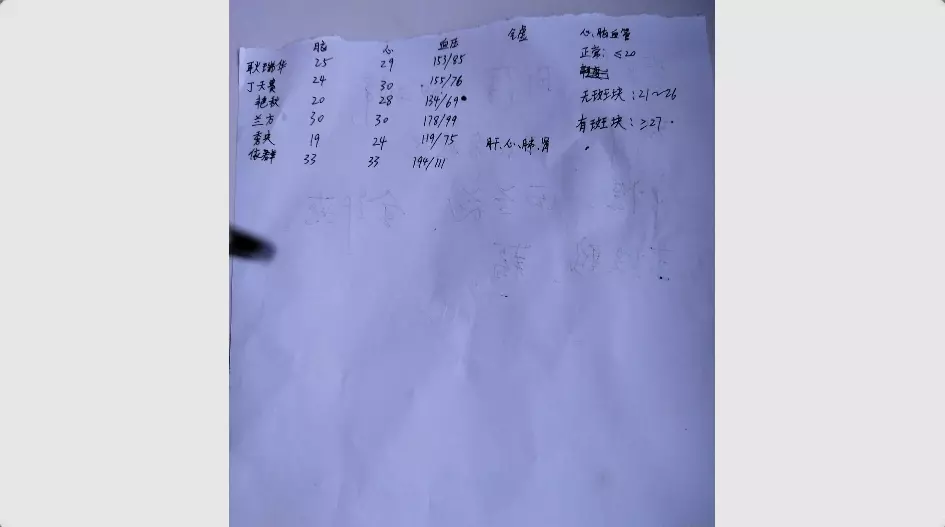 脑 心 血压 全虚 心、脑血管
25 29 153/85 正常：≤20
丁天 24 30 155/76
艳秋 20 28 134/69 无斑块：21~26
兰方 30 30 178/99 有斑块：≥27
19 24 119/75 肝、心、肺、肾
依群 33 33 194/111